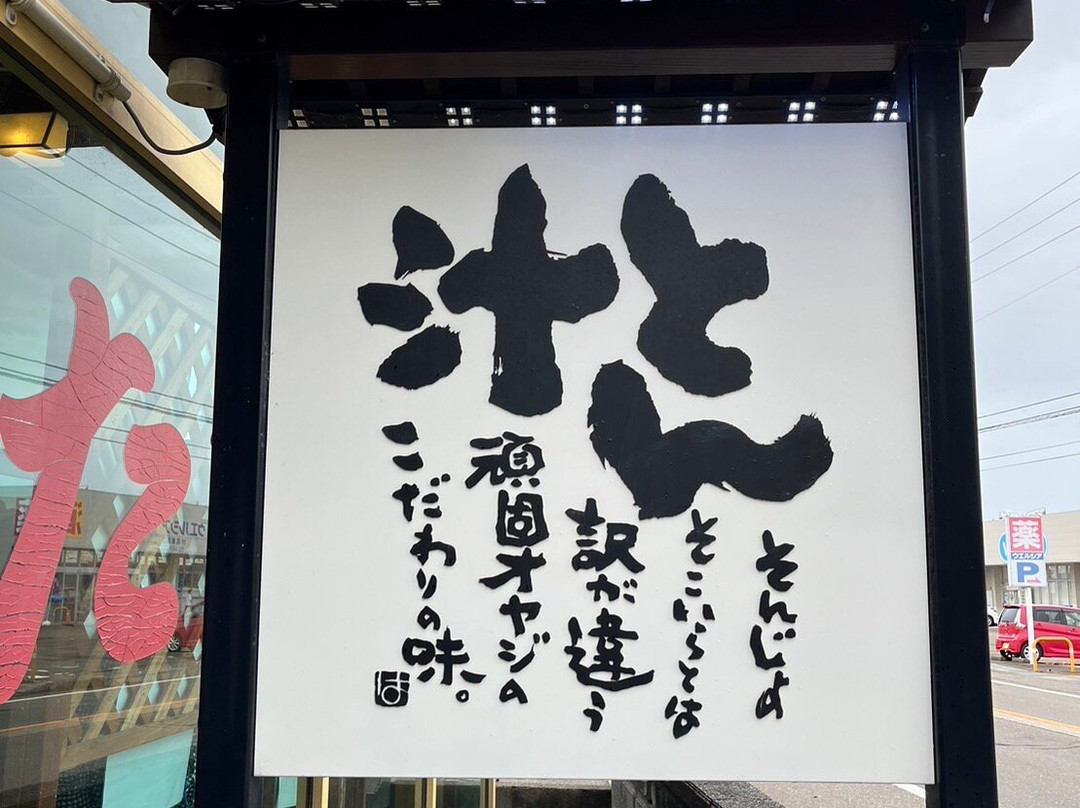 とん
汁
そんじょ
そこいらとは
訳が違う
頑固オヤジの
こだわりの味。
た
薬
ウエルシア
P